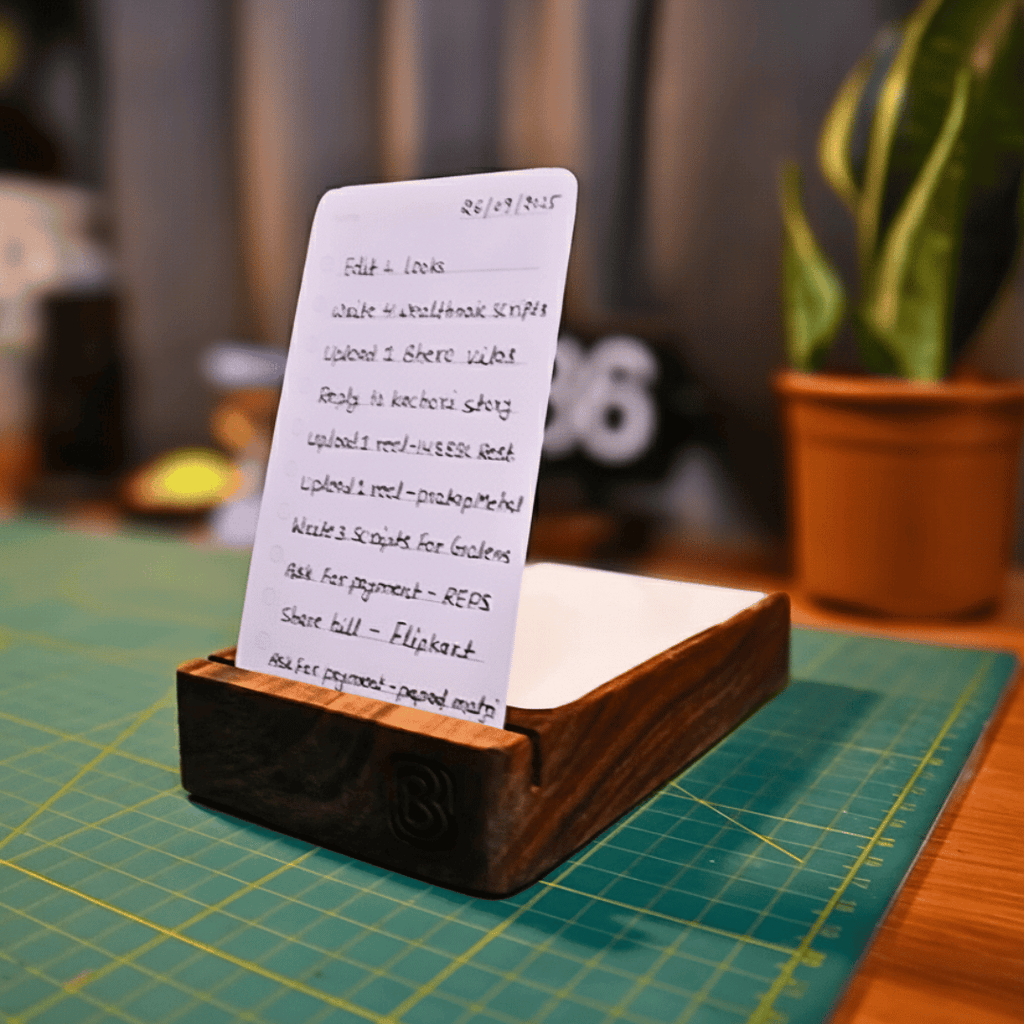 26/09/2025
Edit 2 looks
Write 4 wealthmaic scripts
Upload 1 Shero
Reply to kachori story
Upload 1 reel- Rest.
Upload 1 reel-
Write 3 scripts For
Ask For payment - REPS
Share bill - Flipkart
Ask For payment -
86
B